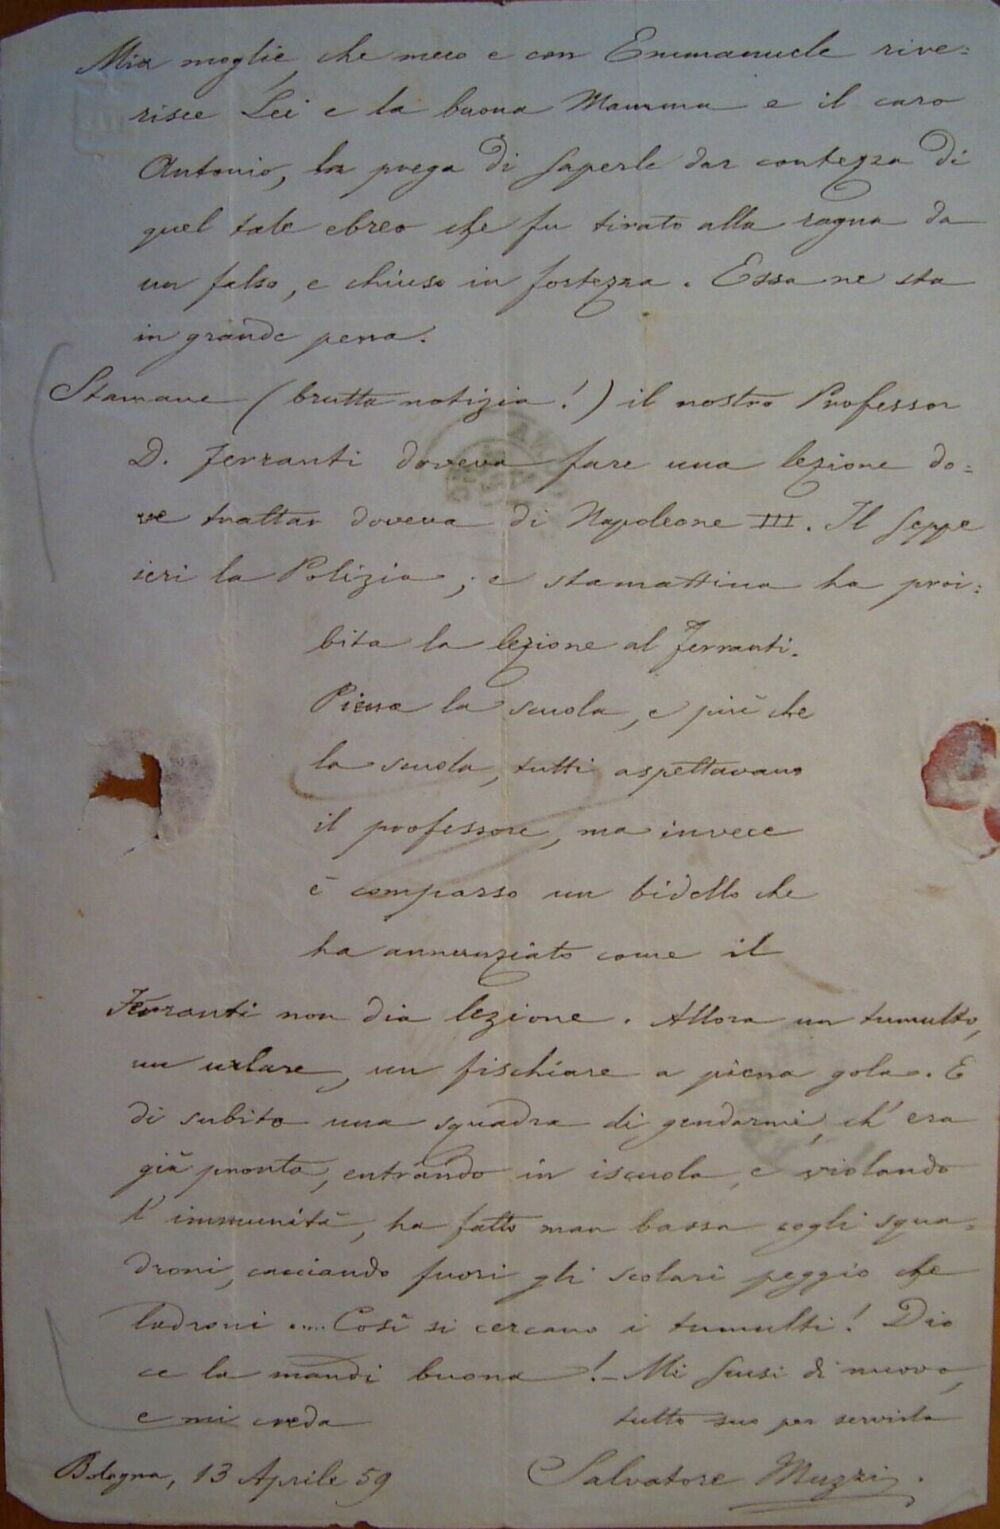 Mia moglie, che meco e con Emmanuele rive=
risce Lei e la buona Mamma e il caro
Antonio, la prega di saperle dar contezza di
quel tale ebreo che fu tirato alla ragna da
un falso, e chiuso in fortezza. Essa ne sta
in grande pena.
Stamane (brutta notizia!) il nostro Professor
D. Ferranti doveva fare una lezione do=
ve trattar doveva di Napoleone III. Il seppe
ieri la Polizia; e stamattina ha proi=
bita la lezione al Ferranti.
Piena la scuola, e più che
la scuola, tutti aspettavano
il professore, ma invece
è comparso un bidello che
ha annunziato come il
Ferranti non dia lezione. Allora un tumulto,
un urlare, un fischiare a piena gola. E
di subito una squadra di gendarmi, ch'era
già pronta, entrando in iscuola, e violando
l'immunità, ha fatto man bassa cogli squa=
droni, cacciando fuori gli scolari peggio che
ladroni .... Così si cercano i tumulti! Dio
ce la mandi buona!- Mi scusi di nuovo,
e mi creda tutto suo per servirla
Bologna, 13 Aprile 59 Salvatore Muzzi.